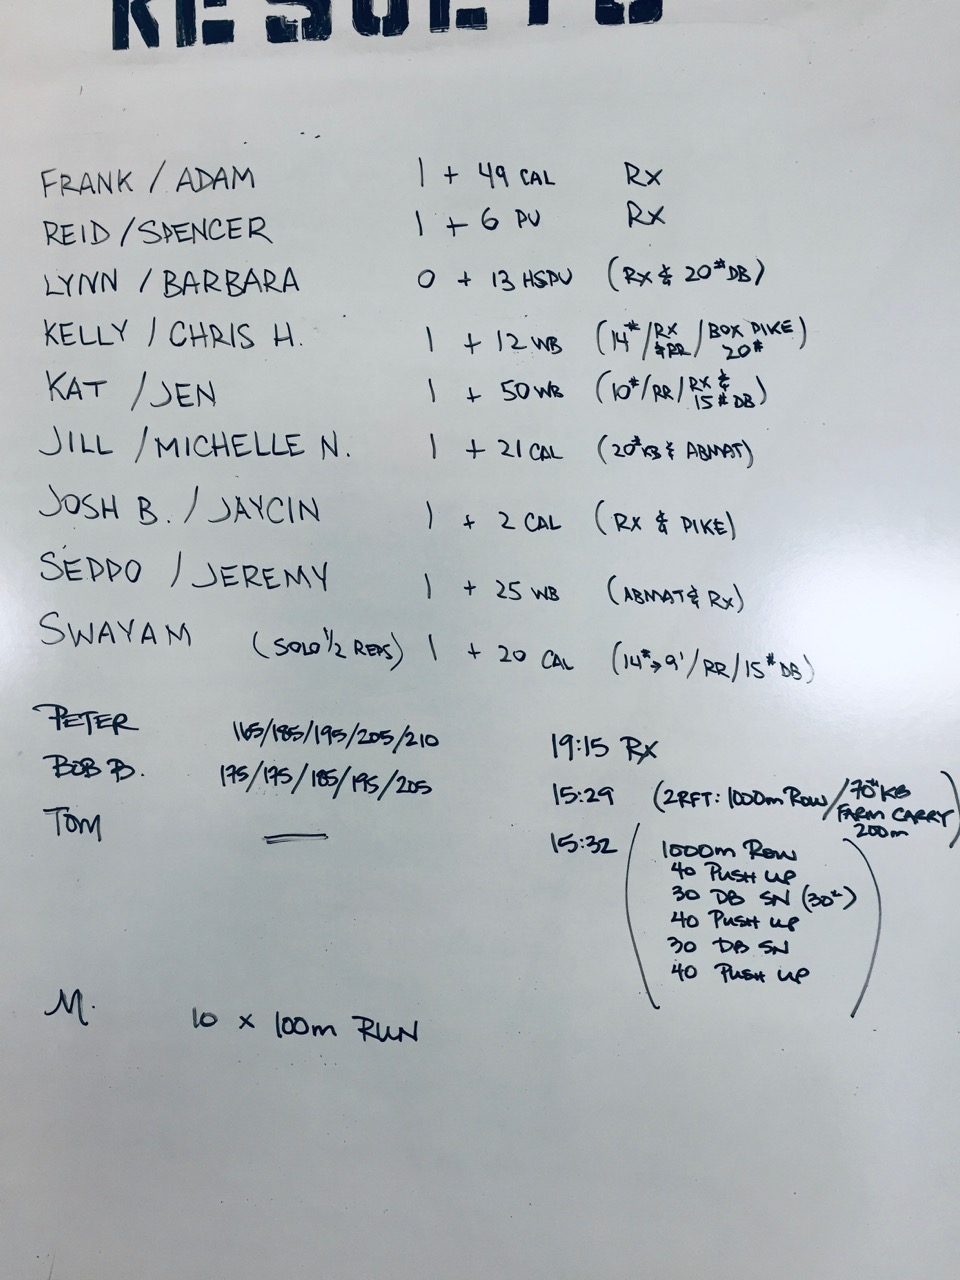 RESULTS
FRANK / ADAM 1 + 49 CAL Rx
REID / SPENCER 1 + 6 PU Rx
LYNN / BARBARA 0 + 13 HSPU (Rx & 20# DB)
KELLY / CHRIS H. 1 + 12 WB (14#/RX & RR/BOX PIKE 20#)
KAT / JEN 1 + 50 WB (10#/RR/RX & 15# DB)
JILL / MICHELLE N. 1 + 21 CAL (20# KB & ABMAT)
JOSH B. / JAYCIN 1 + 2 CAL (RX & PIKE)
SEPPO / JEREMY 1 + 25 WB (ABMAT & Rx)
SWAYAM (SOLO 1/2 REPS) 1 + 20 CAL (14#→9'/RR/15# DB)
PETER 165/185/195/205/210 19:15 Rx
BOB B. 175/175/185/195/205 15:29 (2RFT: 1000m ROW/70# KB
FARM CARRY
200m)
TOM — 15:32 (1000m ROW
40 PUSH UP
30 DB SN (30#)
40 PUSH UP
30 DB SN
40 PUSH UP)
M. 10 x 100m RUN